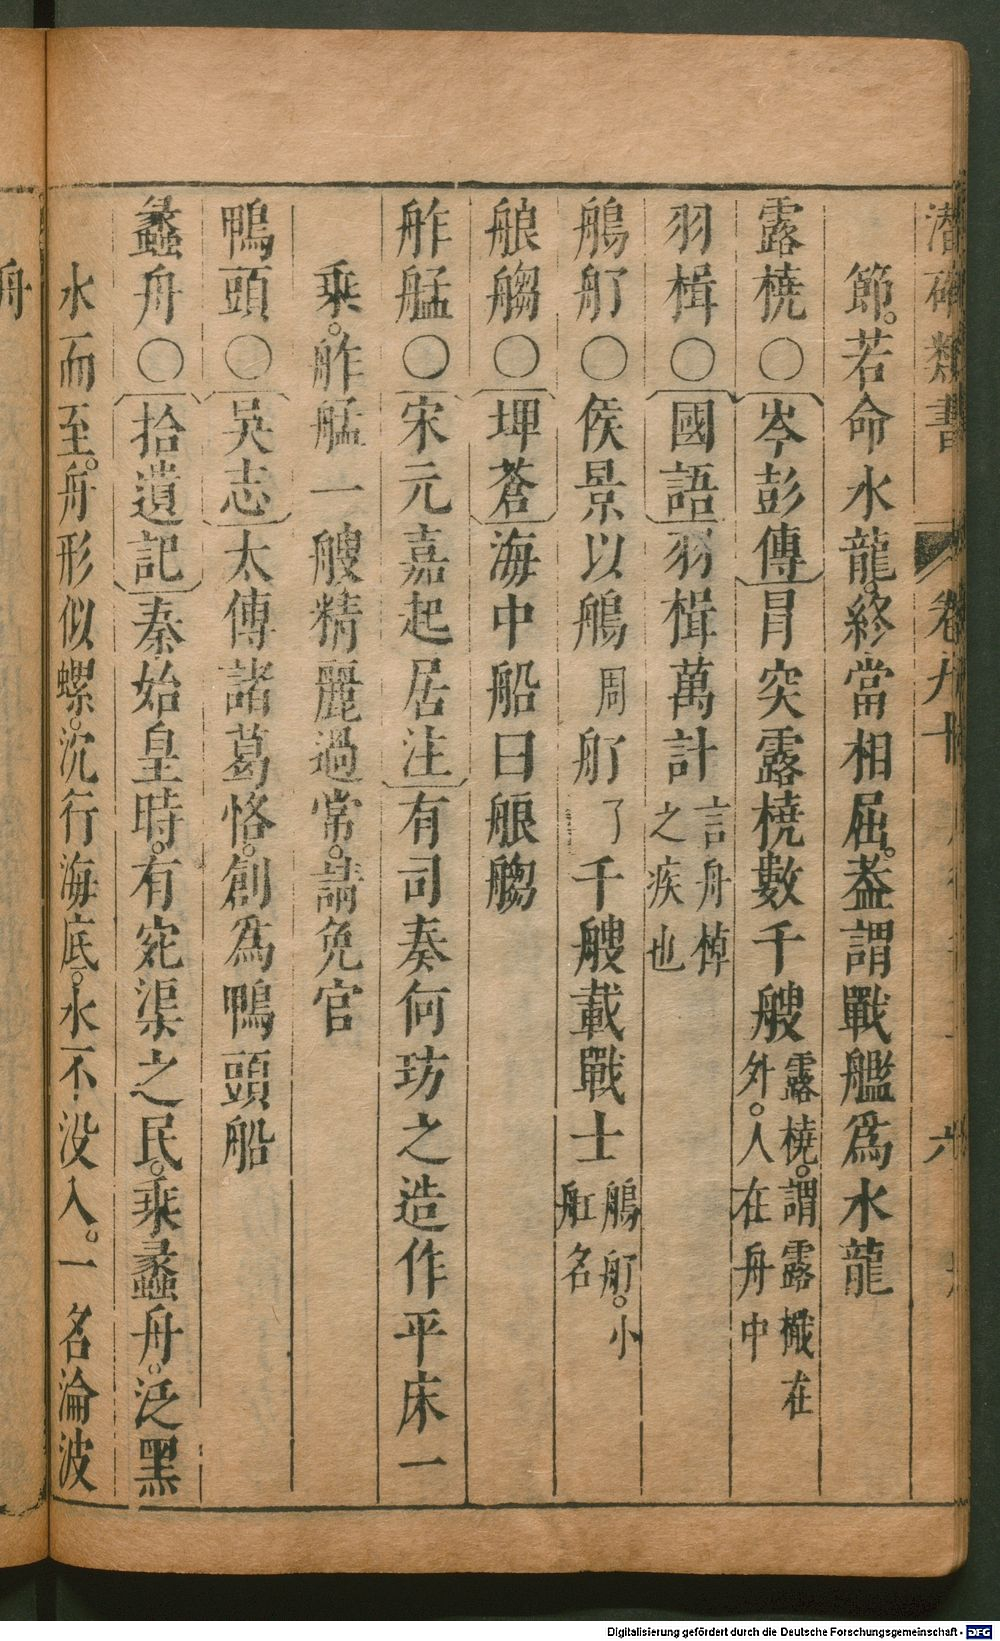 潛確類書 卷九十
節。若命水龍。終當相屈。葢謂戰艦爲水龍
露橈○岑彭傳冒突露橈數千艘露橈。謂露檝在外。人在舟中
羽楫○國語羽楫萬計言舟棹之疾也
鵃𦨣○侯景以鵃周𦨣了千艘載戰士鵃𦨣。小舡名
艆䑼○埤蒼海中船曰艆䑼
舴艋○宋元嘉起居注有司奏何玏之造作平床一
乘。舴艋一艘精麗過常。請免官
鴨頭○吳志太傅諸葛恪。創爲鴨頭船
蠡舟○拾遺記秦始皇時。有宛渠之民。乘蠡舟。泛黑
水而至。舟形似螺。沉行海底。水不没入。一名淪波
舟
Digitalisierung gefördert durch die Deutsche Forschungsgemeinschaft - DFG